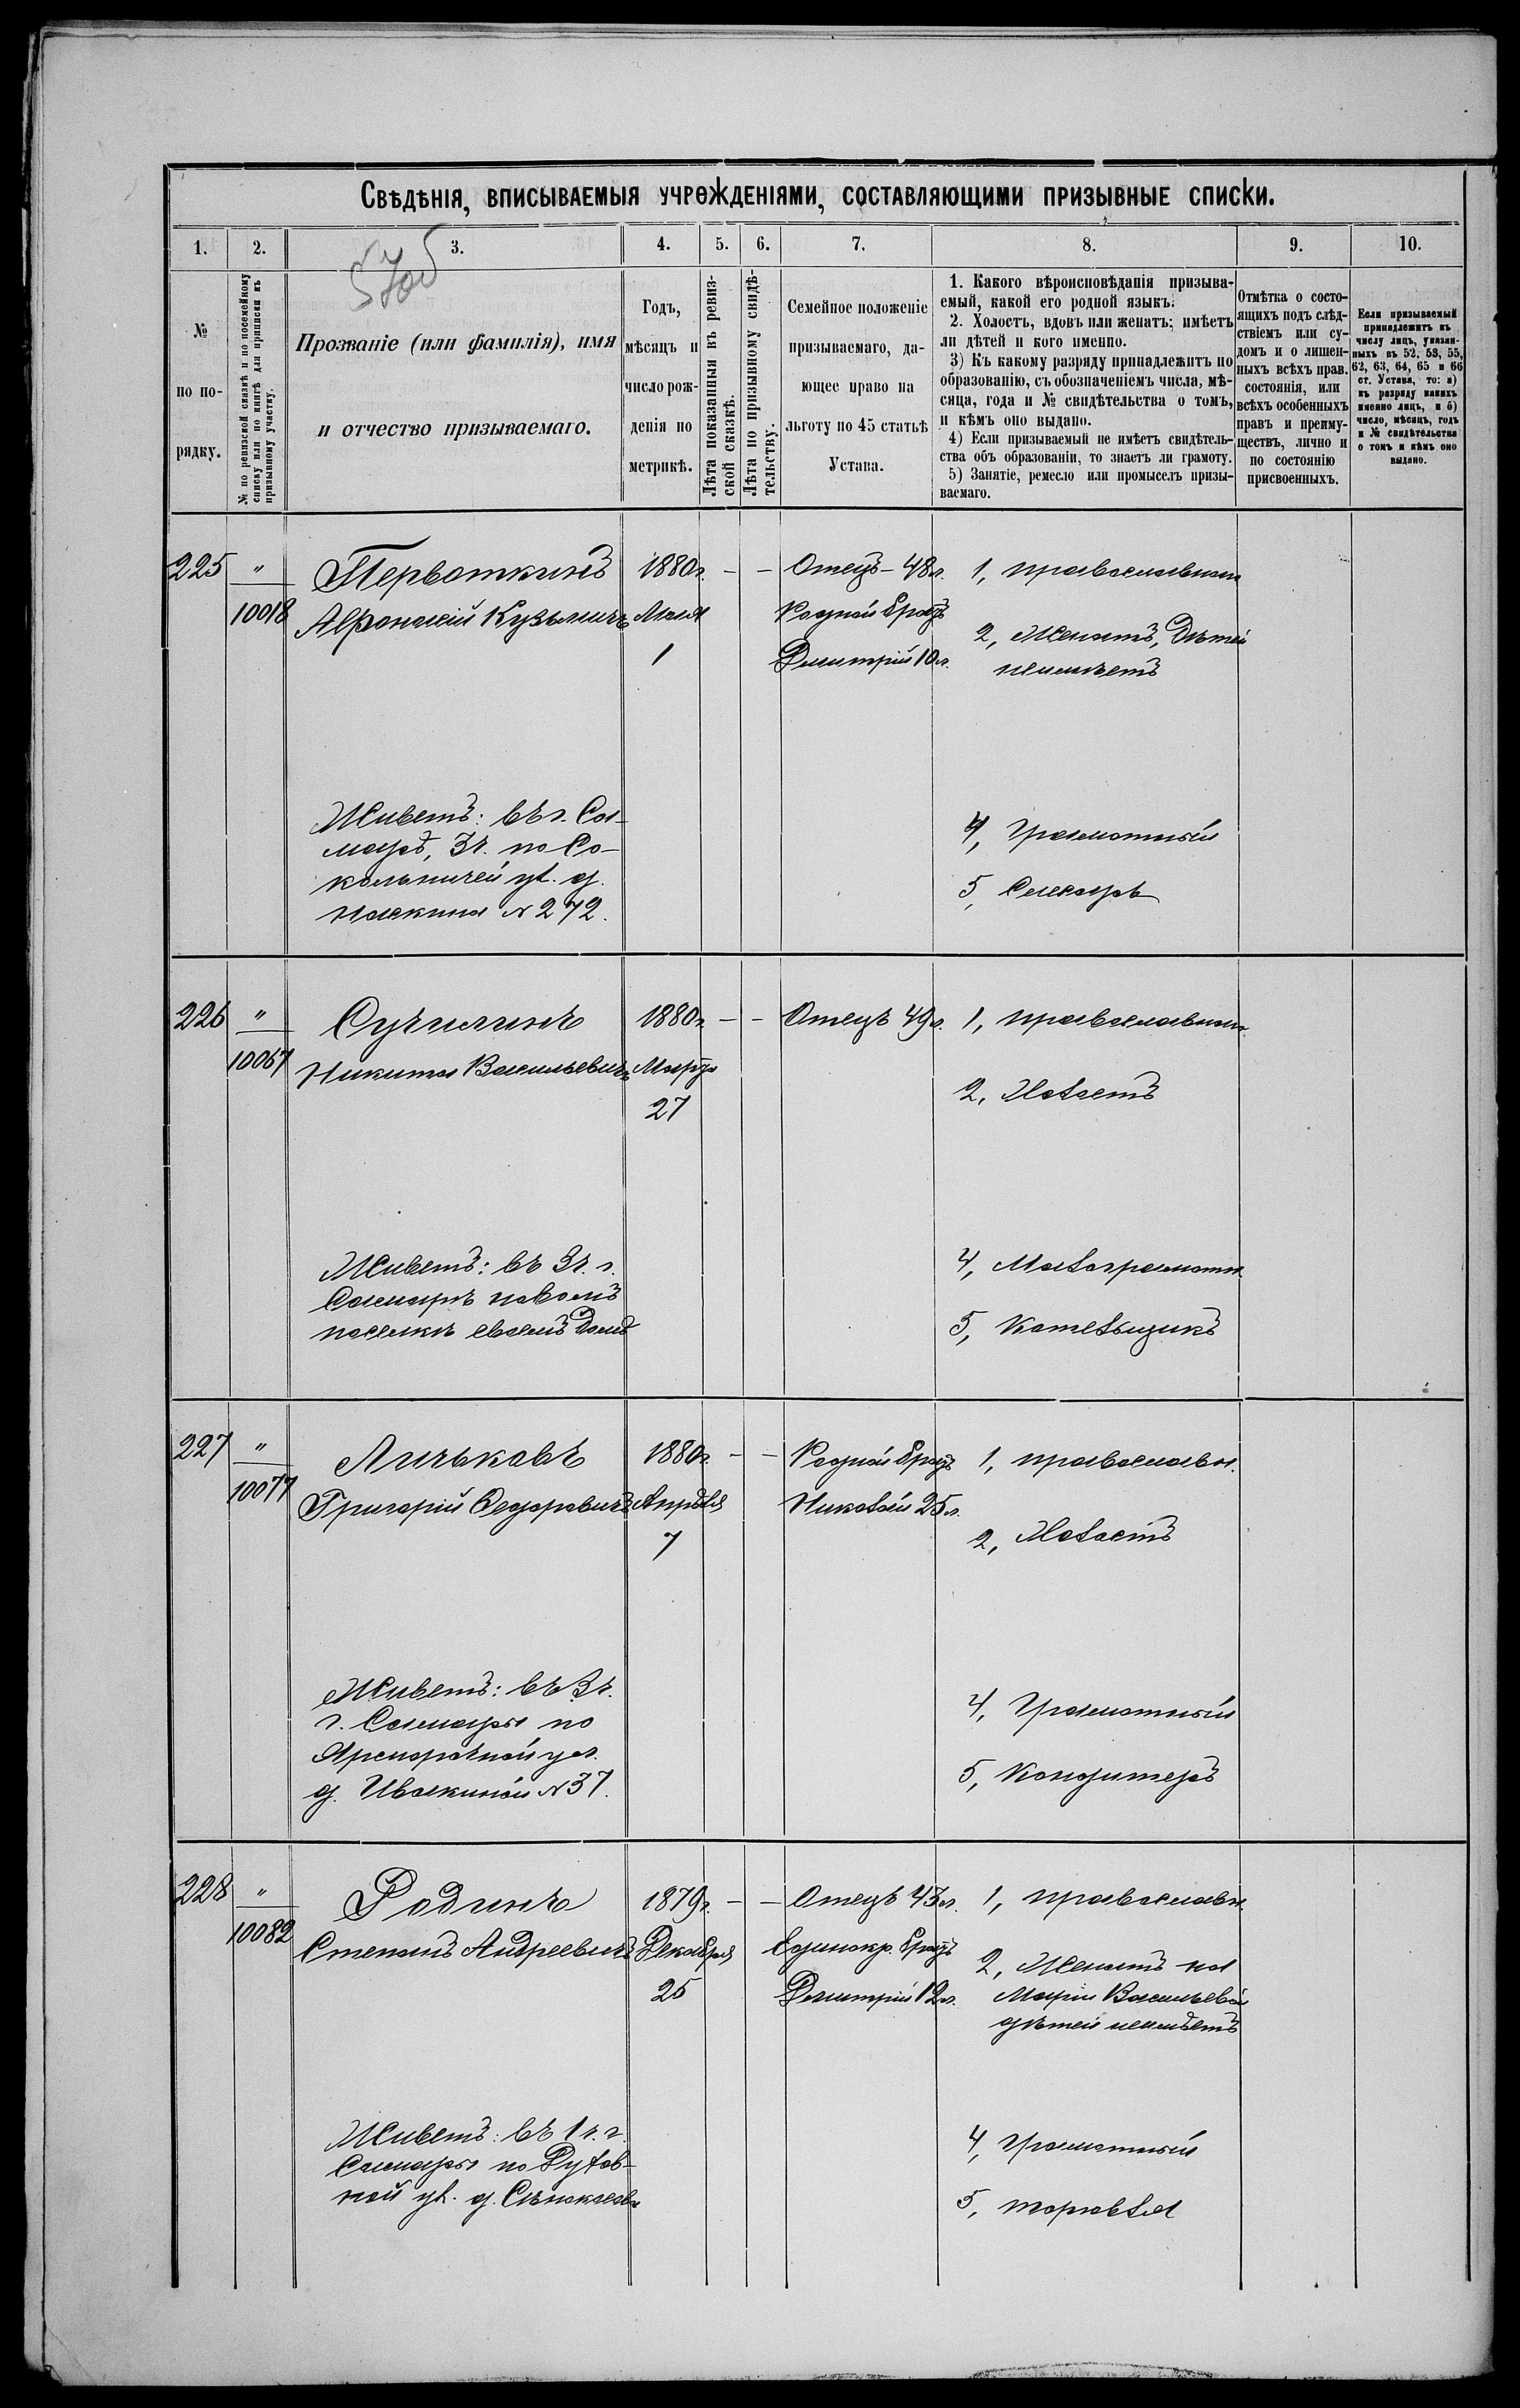 Свѣдѣнія, вписываемыя учрежденіями, составляющими призывные списки.
1. 2. 3. 4. 5. 6. 7. 8. 9. 10.
570б
№
по по-
рядку.
№ по ревизской сказкѣ и по посемейному
списку или по книгѣ для приписки къ
призывному участку.
Прозваніе (или фамилія), имя
и отчество призываемаго.
Годъ,
мѣсяцъ и
число рож-
денія по
метрикѣ.
Лѣта показанныя въ ревиз-
ской сказкѣ.
Лѣта по призывному свидѣ-
тельству.
Семейное положеніе
призываемаго, да-
ющее право на
льготу по 45 статьѣ
Устава.
1. Какого вѣроисповѣданія призыва-
емый, какой его родной языкъ.
2. Холостъ, вдовъ или женатъ; имѣетъ
ли дѣтей и кого именно.
3) Къ какому разряду принадлежитъ по
образованію, съ обозначеніемъ числа, мѣ-
сяца, года и № свидѣтельства о томъ,
и кѣмъ оно выдано.
4) Если призываемый не имѣетъ свидѣтель-
ства объ образованіи, то знаетъ ли грамоту.
5) Занятіе, ремесло или промыселъ призы-
ваемаго.
Отмѣтка о состо-
ящихъ подъ слѣд-
ствіемъ или су-
домъ и о лишен-
ныхъ всѣхъ прав.
состоянія, или
всѣхъ особенныхъ
правъ и преиму-
ществъ, лично и
по состоянію
присвоенныхъ.
Если призываемый
принадлежитъ къ
числу лицъ, указан-
ныхъ въ 52, 53, 55,
62, 63, 64, 65 и 66
ст. Устава, то: а)
къ разряду какихъ
именно лицъ, и б)
число, мѣсяцъ, годъ
и № свидѣтельства
о томъ и кѣмъ оно
выдано.
225 " Первоткинъ 1880г. - - Отецъ - 48л. 1, православнаго
10018 Афонасій Кузьмичъ Мая Родной братъ
1 Дмитрій 10л. 2, Женатъ, Дѣтей
неимѣетъ
Живетъ: въ г. Са-
марѣ, 3ч. по Со-
кольничей ул. д.
Наскина № 272.
4, Грамотный
5, Слесарь
226 " Сучилинъ 1880г. - - Отецъ 49л. 1, православнаго
10067 Никита Васильевичъ Марта
27 2, Холостъ
Живетъ: въ 3ч. г.
Самарѣ новомъ
поселкѣ своемъ Домѣ
4, Малограмотн.
5, Котельщикъ
227 " Личьковъ 1880г. - - Родной братъ 1, православн.
10077 Григорій Федоровичъ Апрѣля Николай 25л.
7 2, Холостъ
Живетъ: въ 3ч.
г. Самары по
Ярмарочной ул.
д. Ивакиной № 37.
4, Грамотный
5, Кондитеръ
228 " Родинъ 1879г. - - Отецъ 43л. 1, православн.
10082 Степанъ Андреевичъ Декабря Единокр. братъ
25 Дмитрій 12л. 2, Женатъ на
Маріи Васильевой
дѣтей неимѣетъ
Живетъ: въ 1ч. г.
Самары по
ул. д.
4, Грамотный
5, торговля